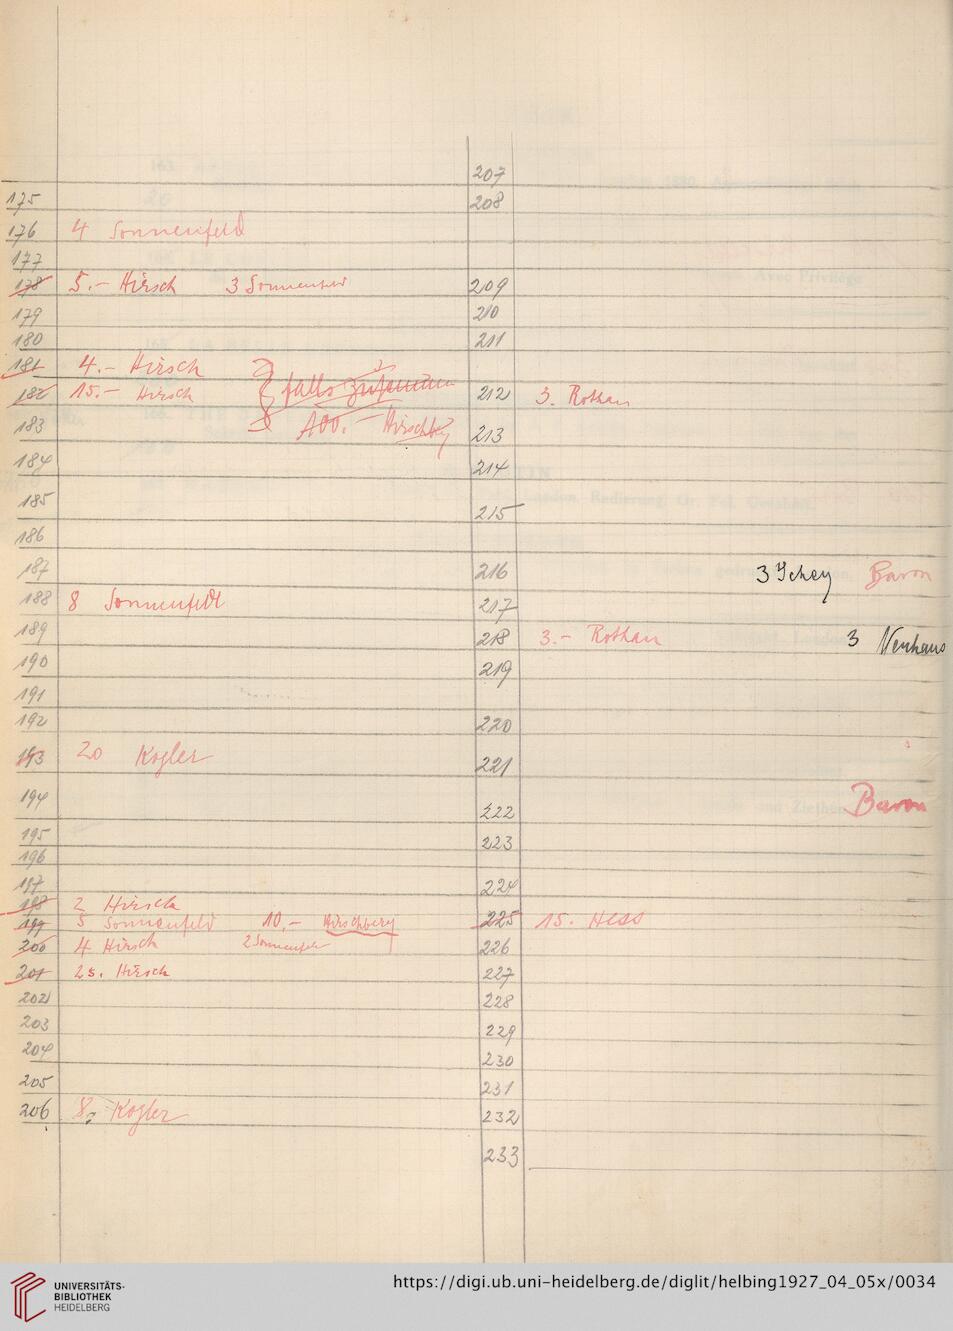 175
176 4 Sonnenfeld
177
178 5.- Hirsch 3 Sonnenfeld
179
180
181 4.- Hirsch
182 15.- Hirsch falls zusammen
183 100.- Hirschbg
184
185
186
187
188 8 Sonnenfeld
189
190
191
192
193 20 Kogler
194
195
196
197
198 2 Hirsch
199 5 Sonnenfeld 10,- Hirschberg
200 4 Hirsch 2 Sonnenfeld
201 25. Hirsch
202
203
204
205
206 8.- Kogler
207
208
209
210
211
212 3. Rothan
213
214
215
216 Baron
217
218 3.- Rothan 3 Neuhaus
219
220
221
222 Baron
223
224
225 15. Hess
226
227
228
229
230
231
232
233
UNIVERSITÄTS-
BIBLIOTHEK
HEIDELBERG
https://digi.ub.uni-heidelberg.de/diglit/helbing1927_04_05x/0034